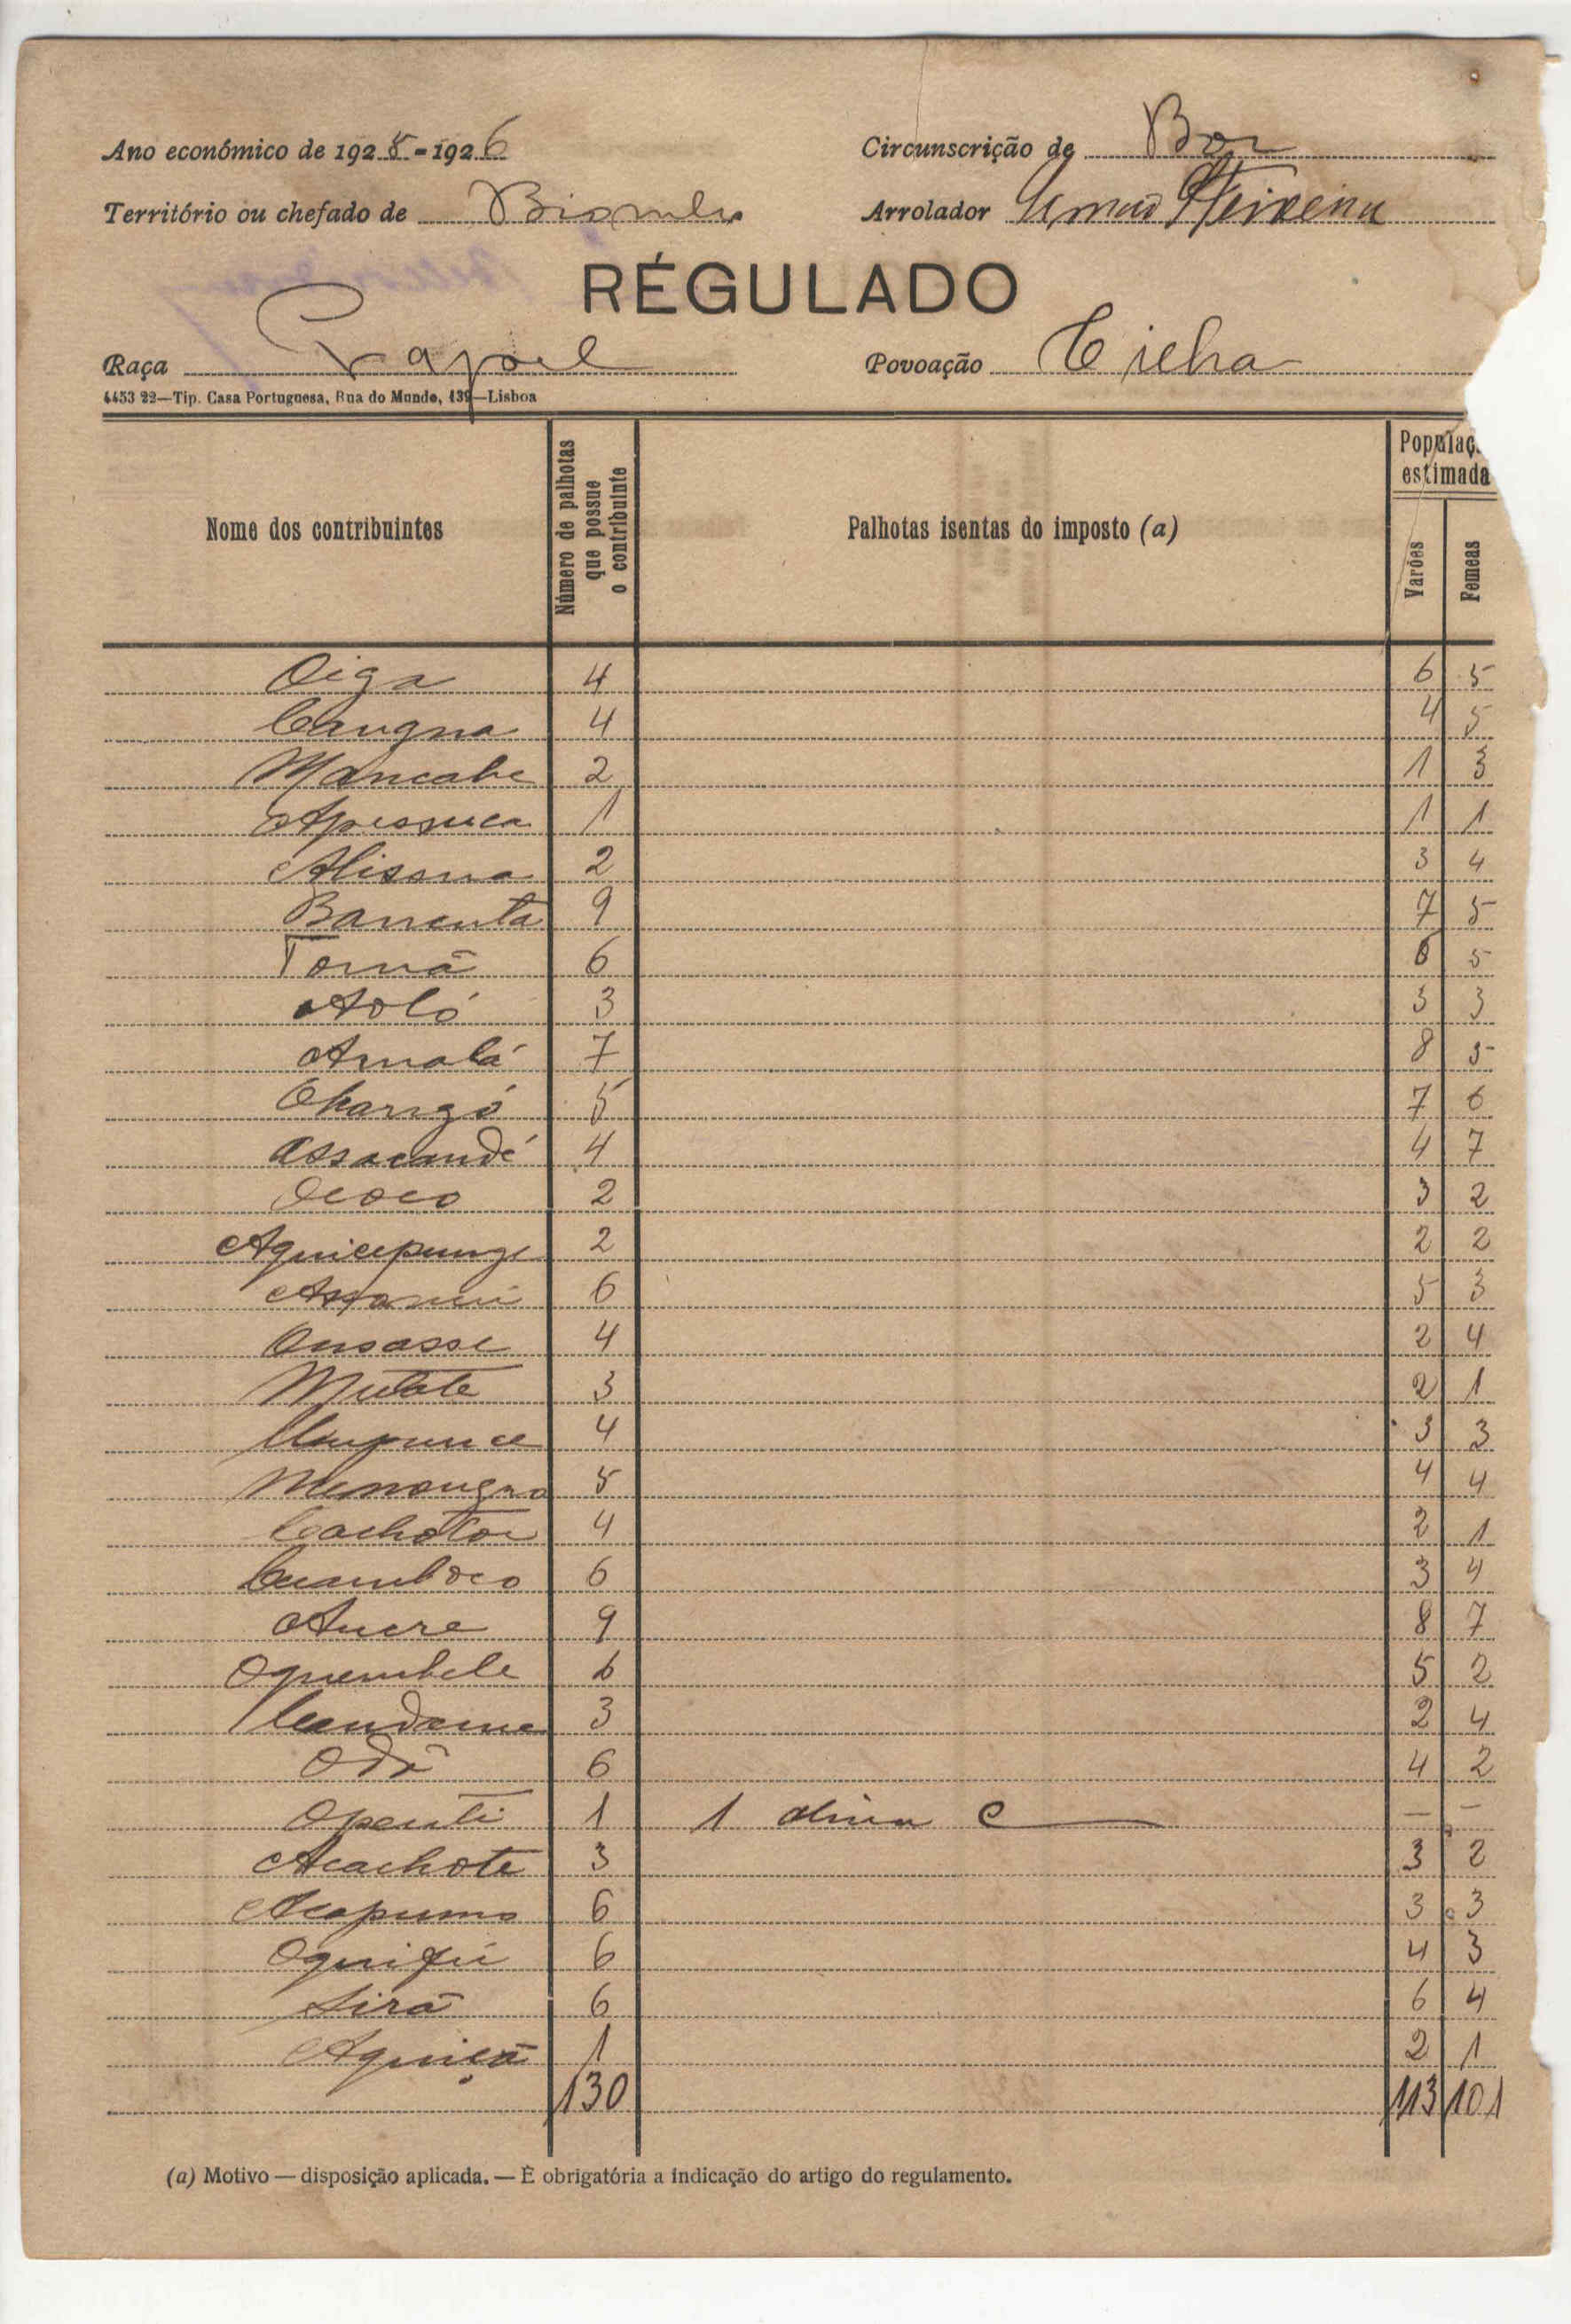 Ano económico de 1925-1926 Circunscrição de Bor
Território ou chefado de Biombo Arrolador Teixeira
RÉGULADO
Raça Papoel Povoação Ticha
4453 22—Tip. Casa Portuguesa, Rua do Mundo, 139—Lisboa
Nome dos contribuintes Número de palhotas que possue o contribuinte Palhotas isentas do imposto (a) Populaç. estimada Varões Femeas
Oiga 4 6 5
Caugna 4 4 5
Mancabe 2 1 3
Apissuca 1 1 1
Alissna 2 3 4
Barrenta 9 7 5
Tornã 6 6 5
Aoló 3 3 3
Amolá 7 8 5
Ohangó 5 7 6
Assacandé 4 4 7
Ococo 2 3 2
Aquicepunge 2 2 2
6 5 3
Onsasse 4 2 4
Mutate 3 2 1
4 3 3
Menougno 5 4 4
Cachotor 4 2 1
Cuamboco 6 3 4
Aucre 9 8 7
Oquembele 6 5 2
3 2 4
Odi 6 4 2
Openti 1 1 — -
Acachote 3 3 2
Acapumo 6 3 3
Oquifú 6 4 3
Sirã 6 6 4
Aquiçã 1 2 1
130 113 101
(a) Motivo — disposição aplicada. — É obrigatória a indicação do artigo do regulamento.